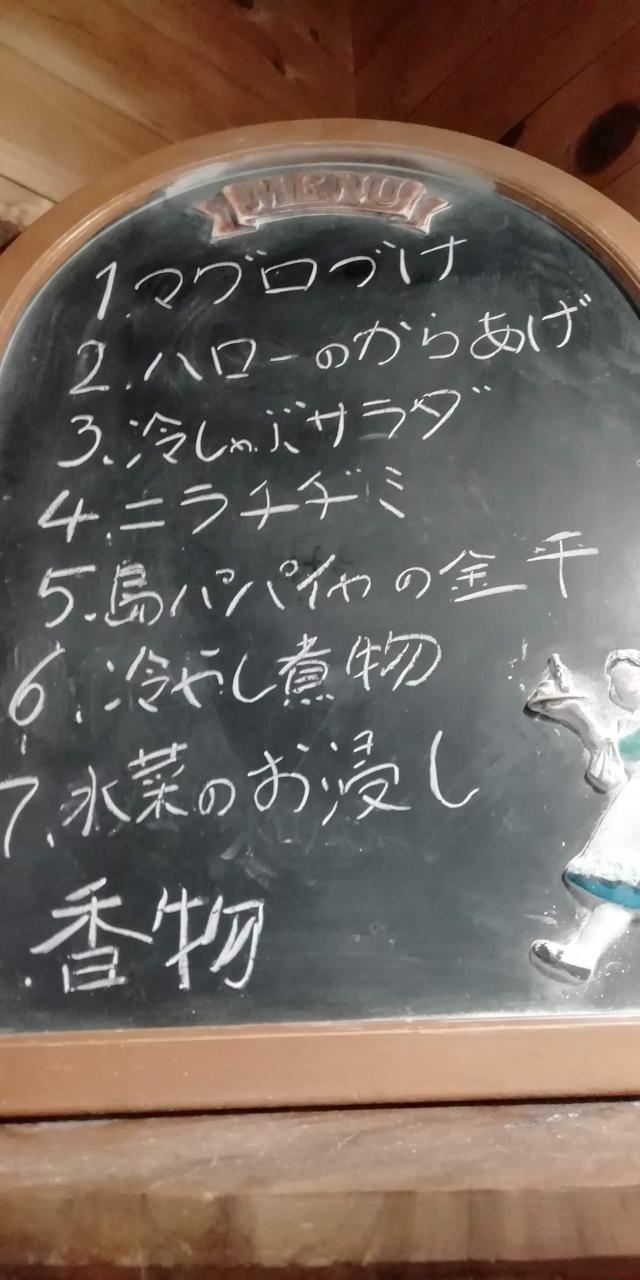 MENU
1.マグロづけ
2.ハローのからあげ
3.冷しゃぶサラダ
4.ニラチヂミ
5.島パパイヤの金平
6.冷やし煮物
7.水菜のお浸し
.香物